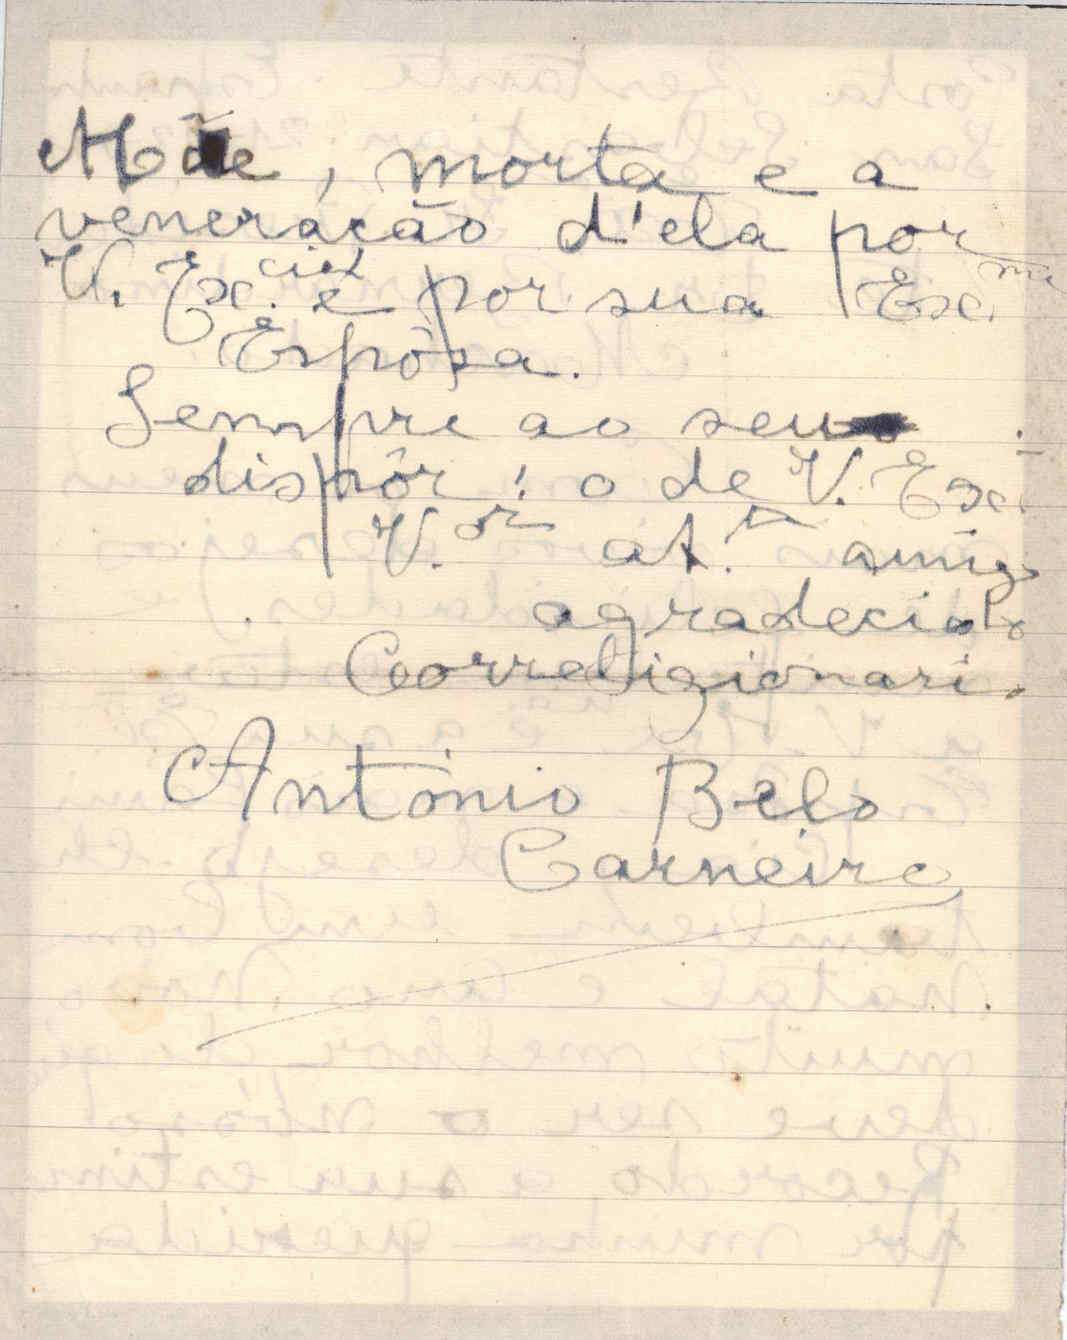 Mãe, morta e a
veneração d'ela por
V. Ex.cia e por sua Ex.ma
Espôsa.
Sempre ao seu
dispôr! o de V. Ex.
V.or at.º amigo
agradecido
Correligionario
António Belo
Carneiro